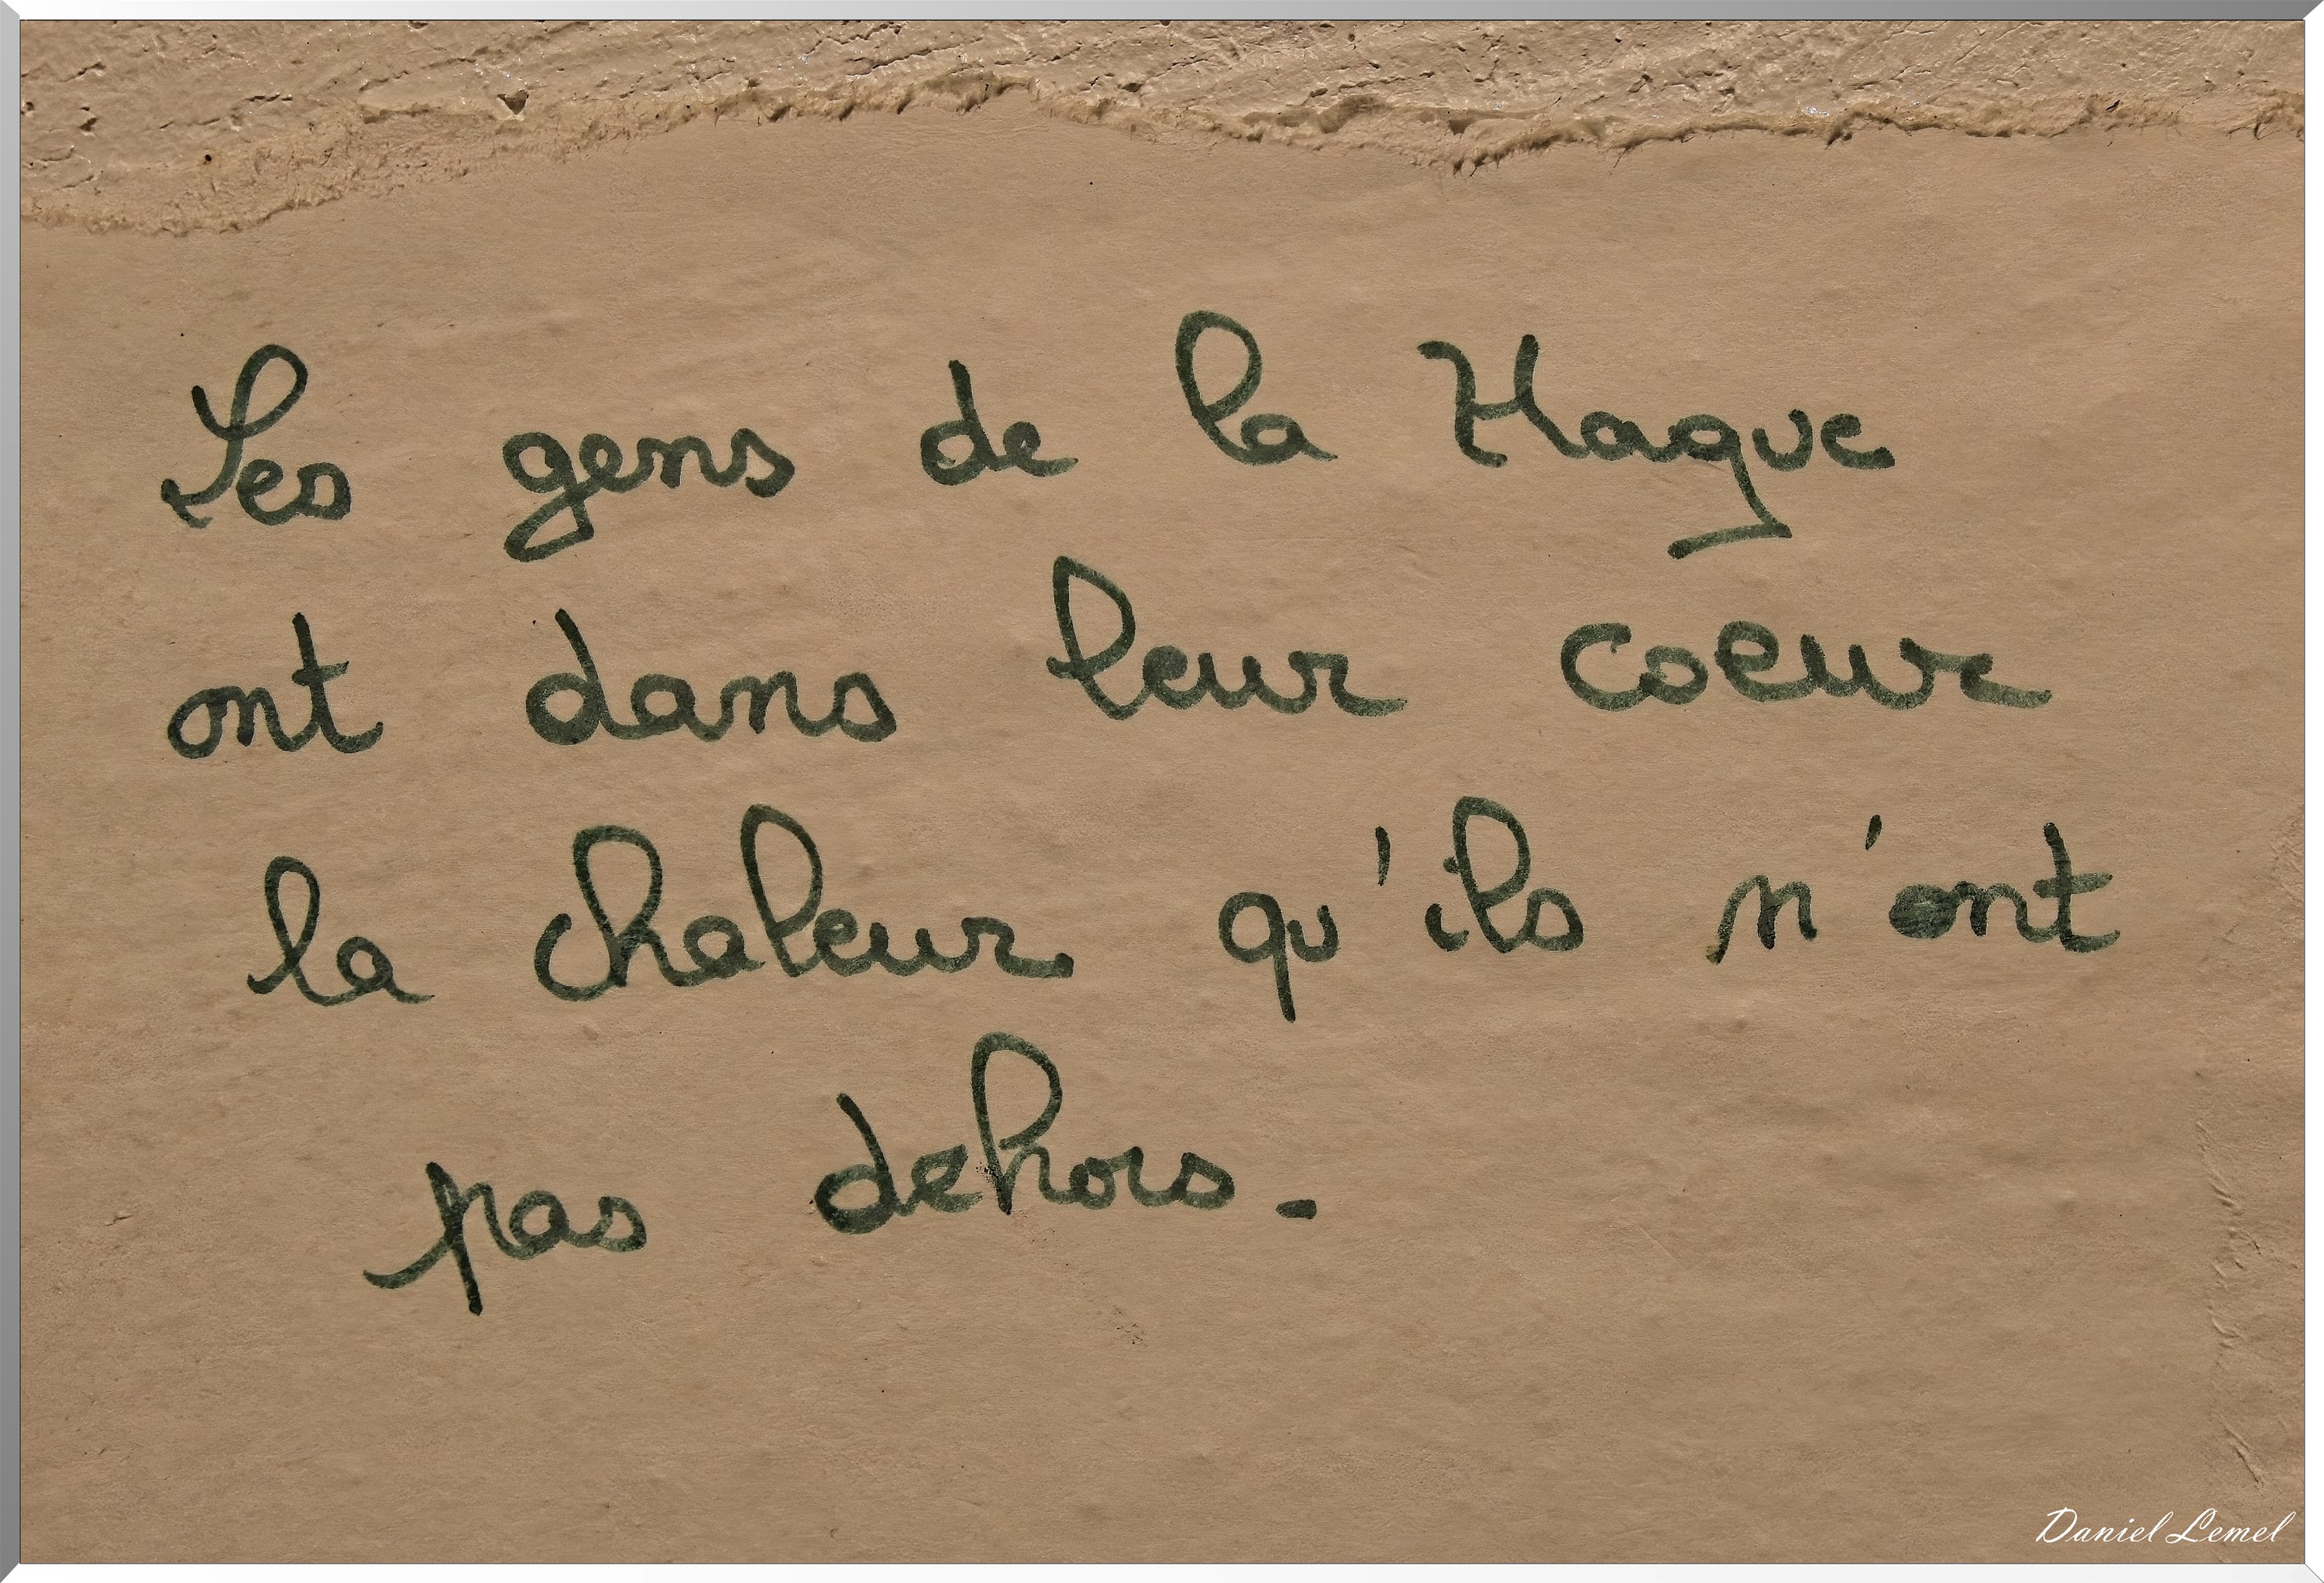 Les gens de la Hague
ont dans leur coeur
la chaleur qu'ils n'ont
pas dehors.
Daniel Lemel